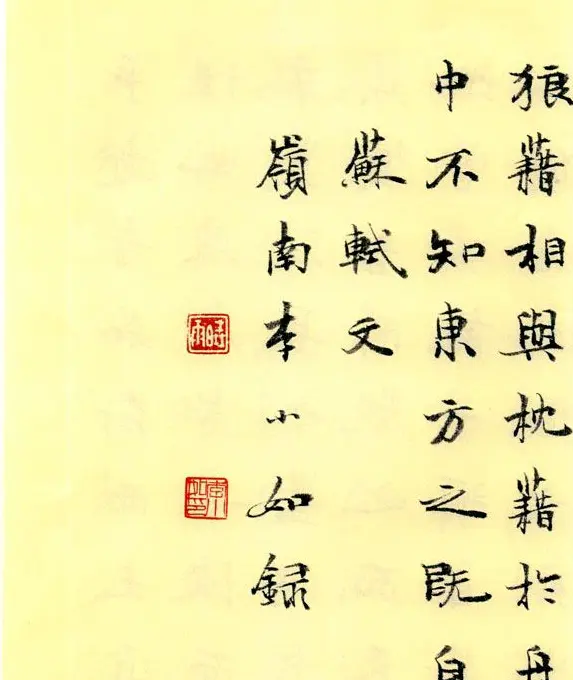 狼藉相與枕藉於舟
中不知東方之既白
蘇軾文
嶺南李小如録
時雨